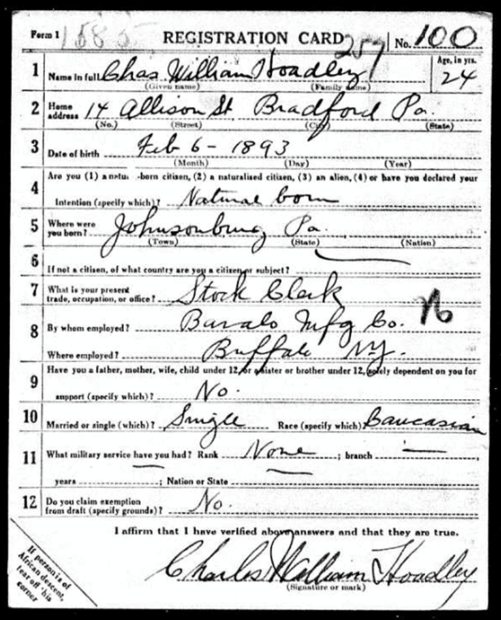 Form 1 1585 REGISTRATION CARD 257 No. 100
1 Name in full Chas. William Hoadley Age, in yrs. 24
(Given name) (Family name)
2 Home address 14 Allison St Bradford Pa.
(No.) (Street) (City) (State)
3 Date of birth Feb 6 - 1893
(Month) (Day) (Year)
4 Are you (1) a natural-born citizen, (2) a naturalized citizen, (3) an alien, (4) or have you declared your
intention (specify which)? Natural born
5 Where were you born? Johnsonburg Pa.
(Town) (State) (Nation)
6 If not a citizen, of what country are you a citizen or subject?
7 What is your present trade, occupation, or office? Stock Clerk
8 By whom employed? Mfg Co.
Where employed? Buffalo N.Y.
9 Have you a father, mother, wife, child under 12, or a sister or brother under 12, solely dependent on you for
support (specify which)? No.
10 Married or single (which)? Single Race (specify which)? Caucasian
11 What military service have you had? Rank None ; branch —
years — ; Nation or State —
12 Do you claim exemption from draft (specify grounds)? No.
I affirm that I have verified above answers and that they are true.
Charles William Hoadley
(Signature or mark)
If person is of
African descent,
tear off this
corner